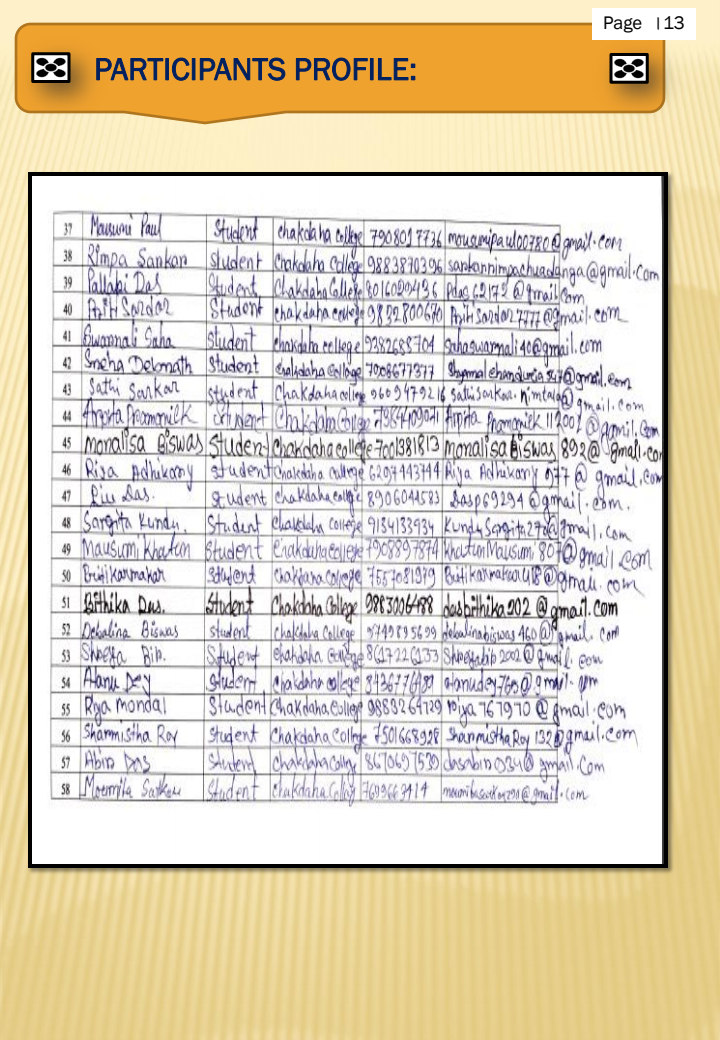 Page | 13
PARTICIPANTS PROFILE:
37 Mausumi Paul Student chakdaha college 7908017736 mousumipaul00780@gmail.com
38 Rimpa Sarkar student Chakdaha College 9883870396 sarkarrimpachuadanga@gmail.com
39 Pallabi Das Student Chakdaha College 8016020436 Pdas62172@gmail.com
40 Student chakdaha college 9832800670
41 Swarnali Saha student chakdaha college 9382688704 sahaswarnali40@gmail.com
42 Sneha Debnath Student chakdaha College 7008677377
43 Sathi Sarkar student Chakdaha college
44 Student Chakdaha College
45 Monalisa Biswas Student Chakdaha college 7001381813 monalisa Biswas 892@gmail.com
46 Riya Adhikary student chakdaha college 6297443744 Riya Adhikary 077@gmail.com
47 Riu Das. student chakdaha college 8906044583 Dasp69294@gmail.com.
48 Sargita Kundu. Student chakdaha college 9134133934
49 Mausumi Khatun Student Chakdaha College 7908897874 khatunMausumi807@gmail.com
50 student chakdaha college 7557081979
51 Bithika Das. Student Chakdaha College dasbithika902@gmail.com
52 Debalina Biswas student chakdaha College 9749895699 debalinabiswas460@gmail.com
53 Student chakdaha College
54 Atanu Dey Student chakdaha College atanudey760@gmail.com
55 Riya Mondal Student Chakdaha College 9883264729 riya767970@gmail.com
56 Sharmistha Roy student Chakdaha College 7501668928 Sharmistha Roy 132@gmail.com
57 Abir Das Student chakdaha College 8670697539 dasabir034@gmail.com
58 Student Chakdaha College 7699669414